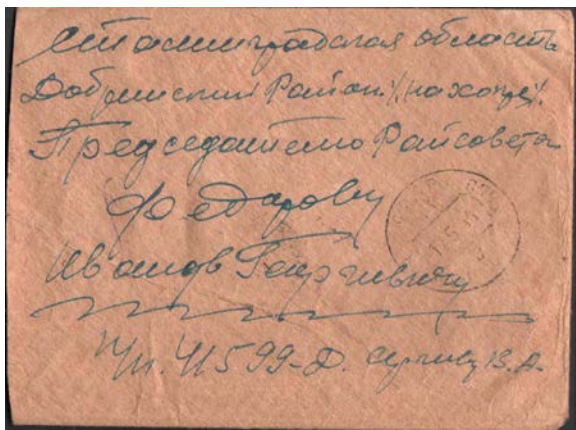 Сталинградская область
Добринский Район /на хопре/.
Председателю Райсовета
Федарову
Иванов Георгиевичу
П/п. 41599-Д.